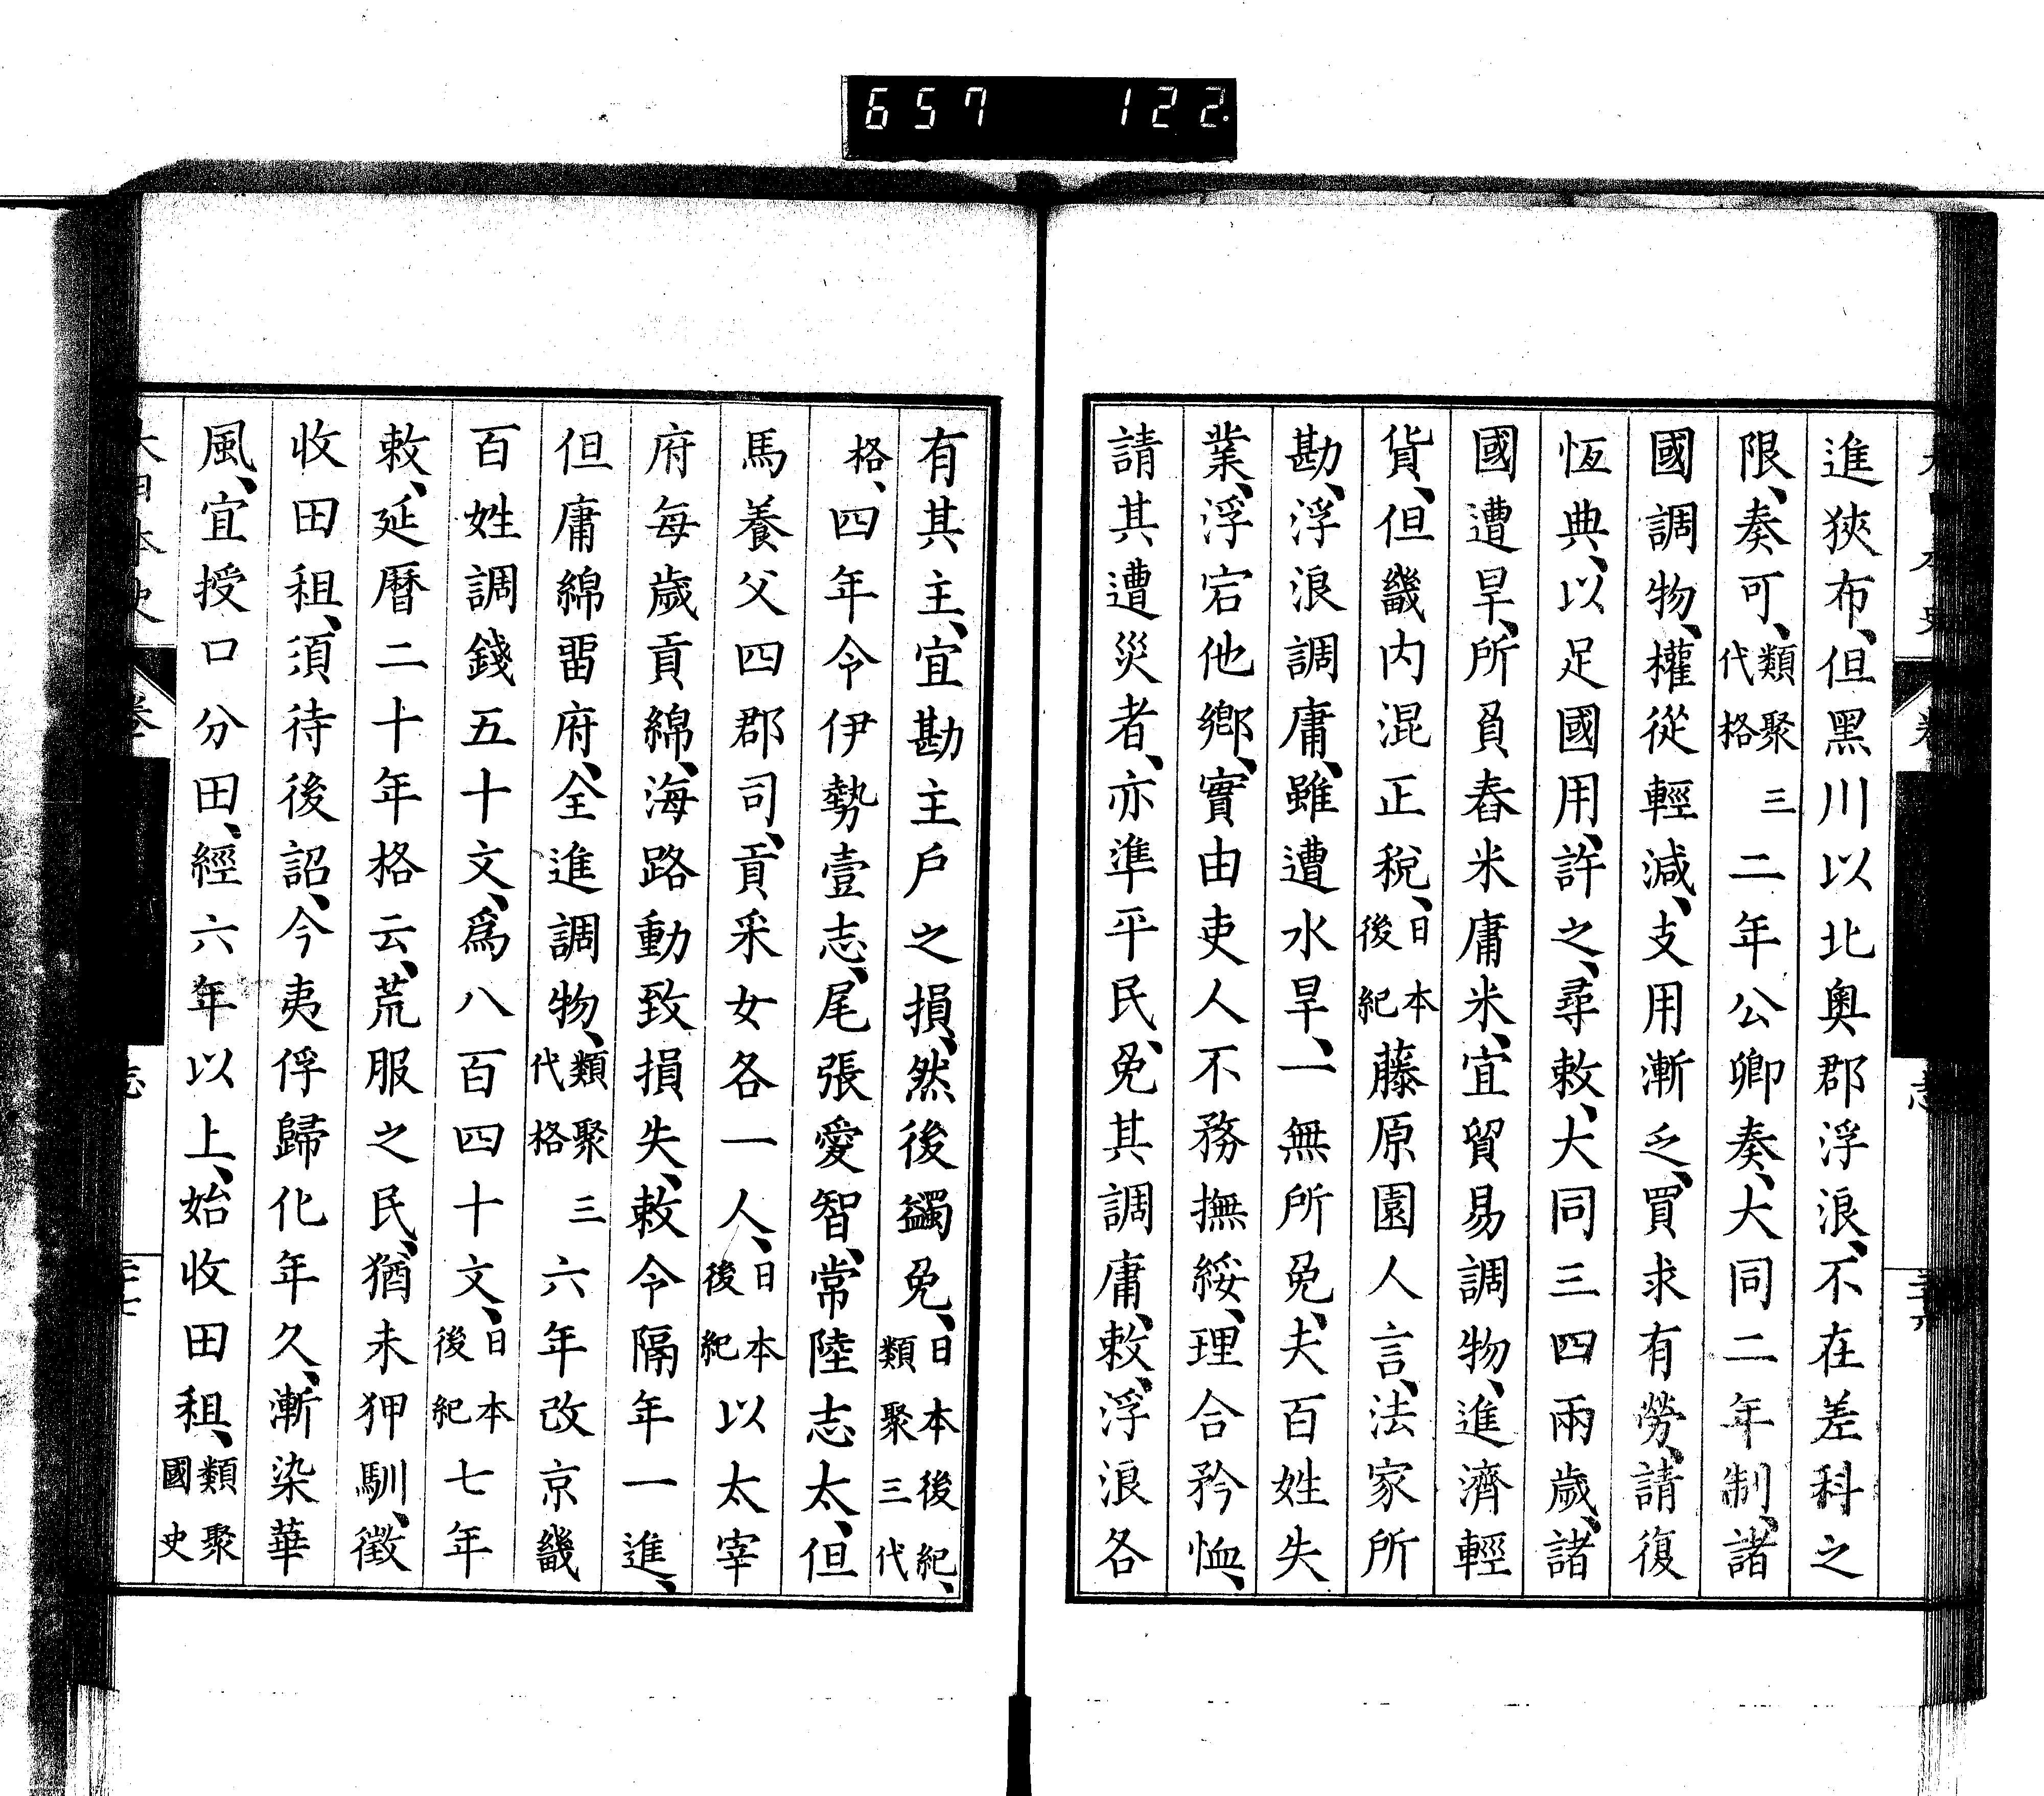 657 122
進狹布、但黑川以北奧郡浮浪、不在差科之
限、奏可、類聚三代格二年公卿奏、大同二年制、諸
國調物、權從輕減、支用漸乏、買求有勞、請復
恆典、以足國用、許之、尋敕、大同三四兩歲、諸
國遭旱、所負舂米庸米、宜貿易調物、進濟輕
貨、但畿内混正稅、日本後紀藤原園人言、法家所
勘、浮浪調庸、雖遭水旱、一無所免、夫百姓失
業、浮宕他鄕、實由吏人不務撫綏、理合矜恤、
請其遭災者、亦準平民、免其調庸、敕、浮浪各
有其主、宜勘主戶之損、然後蠲免、日本後紀、類聚三代
格、四年令伊勢壹志、尾張愛智、常陸志太、但
馬養父四郡司、貢釆女各一人、日本後紀以太宰
府每歲貢綿、海路動致損失、敕令隔年一進、
但庸綿畱府、全進調物、類聚三代格六年改京畿
百姓調錢五十文、爲八百四十文、日本後紀七年
敕、延曆二十年格云、荒服之民、猶未狎馴、徵
收田租、須待後詔、今夷俘歸化年久、漸染華
風、宜授口分田、經六年以上、始收田租、類聚國史
大日本史 卷 志